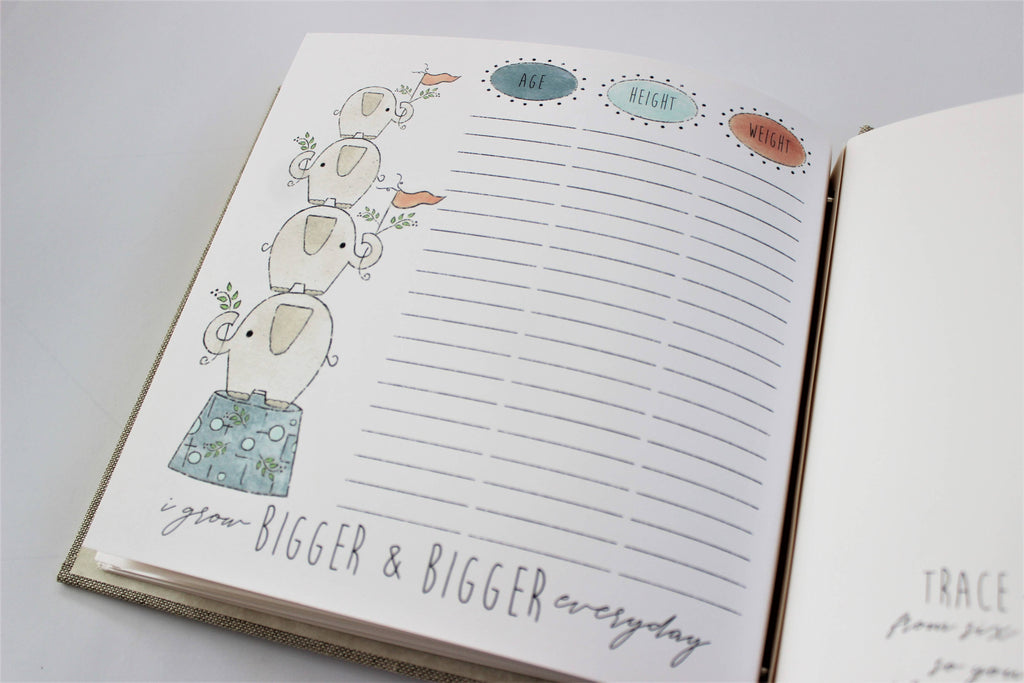 AGE HEIGHT WEIGHT
i grow BIGGER & BIGGER everyday
TRACE
from six
so you